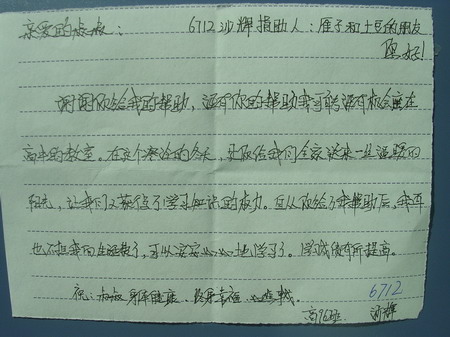 亲爱的叔叔： 6712沙辉捐助人：雁子和土豆的朋友
您好！
谢谢你给我的帮助，没有你的帮助我可能没有机会坐在
高中的教室。在这个寒冷的冬天，是你给我们全家送来一丝温暖的
阳光，让我们又获得了学习知识的权力。自从你给了我帮助后，我再
也不担我的生活费了，可以安安心心地学习了。学成绩有所提高。
祝：叔叔身体健康 幸福
高 班 沙辉
6712